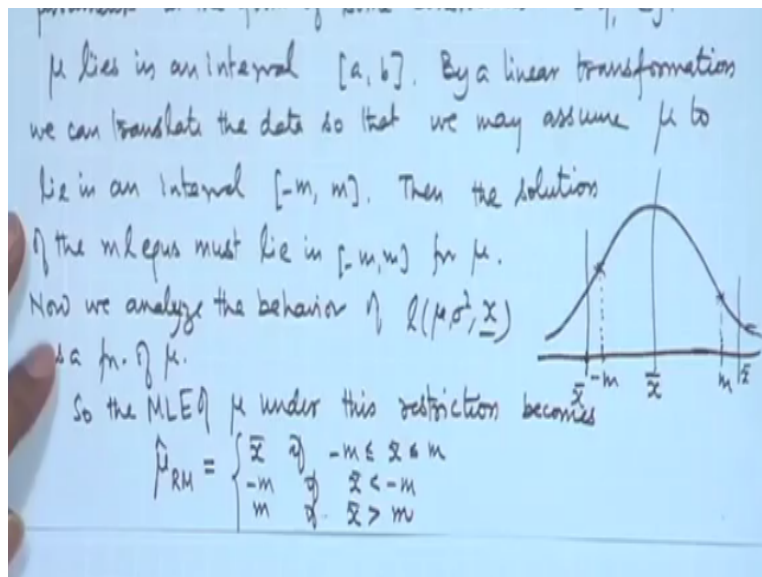 μ lies in an interval [a, b]. By a linear transformation
we can translate the data so that we may assume μ to
lie in an interval [-m, m]. Then the solution
of the ml equs must lie in [-m, m] for μ.
Now we analyze the behavior of l(μ, σ², x)
as a fn. of μ.
x̄ -m x̄ m x̄
So the MLE of μ under this restriction becomes
μ̂_RM = { x̄ if -m ≤ x̄ ≤ m
-m if x̄ < -m
m if x̄ > m